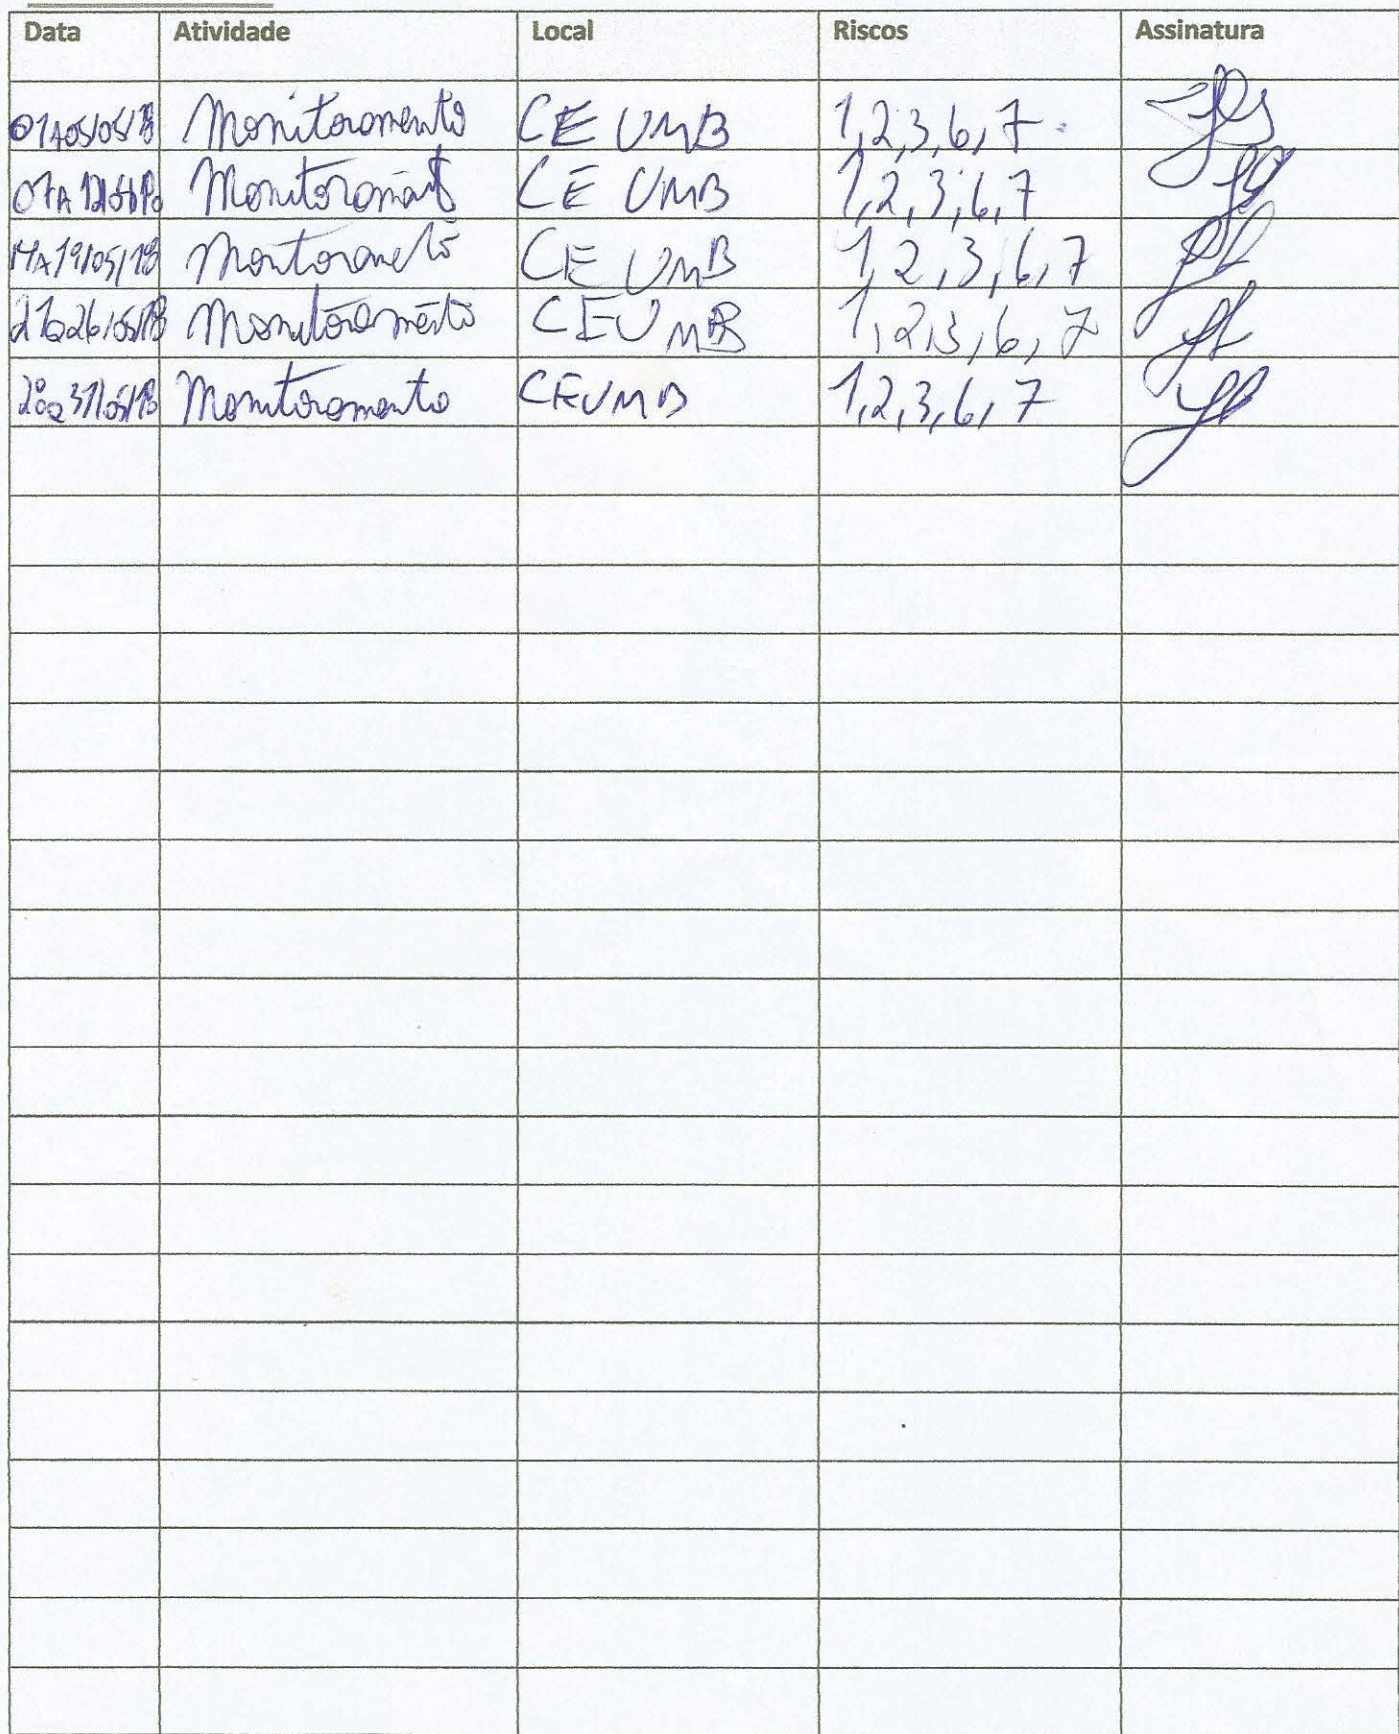 Data Atividade Local Riscos Assinatura
01A05/05/18 Monitoramento CE UMB 1,2,3,6,7.
07A 12/05/18 Monitoramento CE UMB 1,2,3,6,7
14A19/05/18 Monitoramento CE UMB 1,2,3,6,7
21a26/05/18 Monitoramento CEUMB 1,2,3,6,7
28a31/05/18 Monitoramento CEUMB 1,2,3,6,7